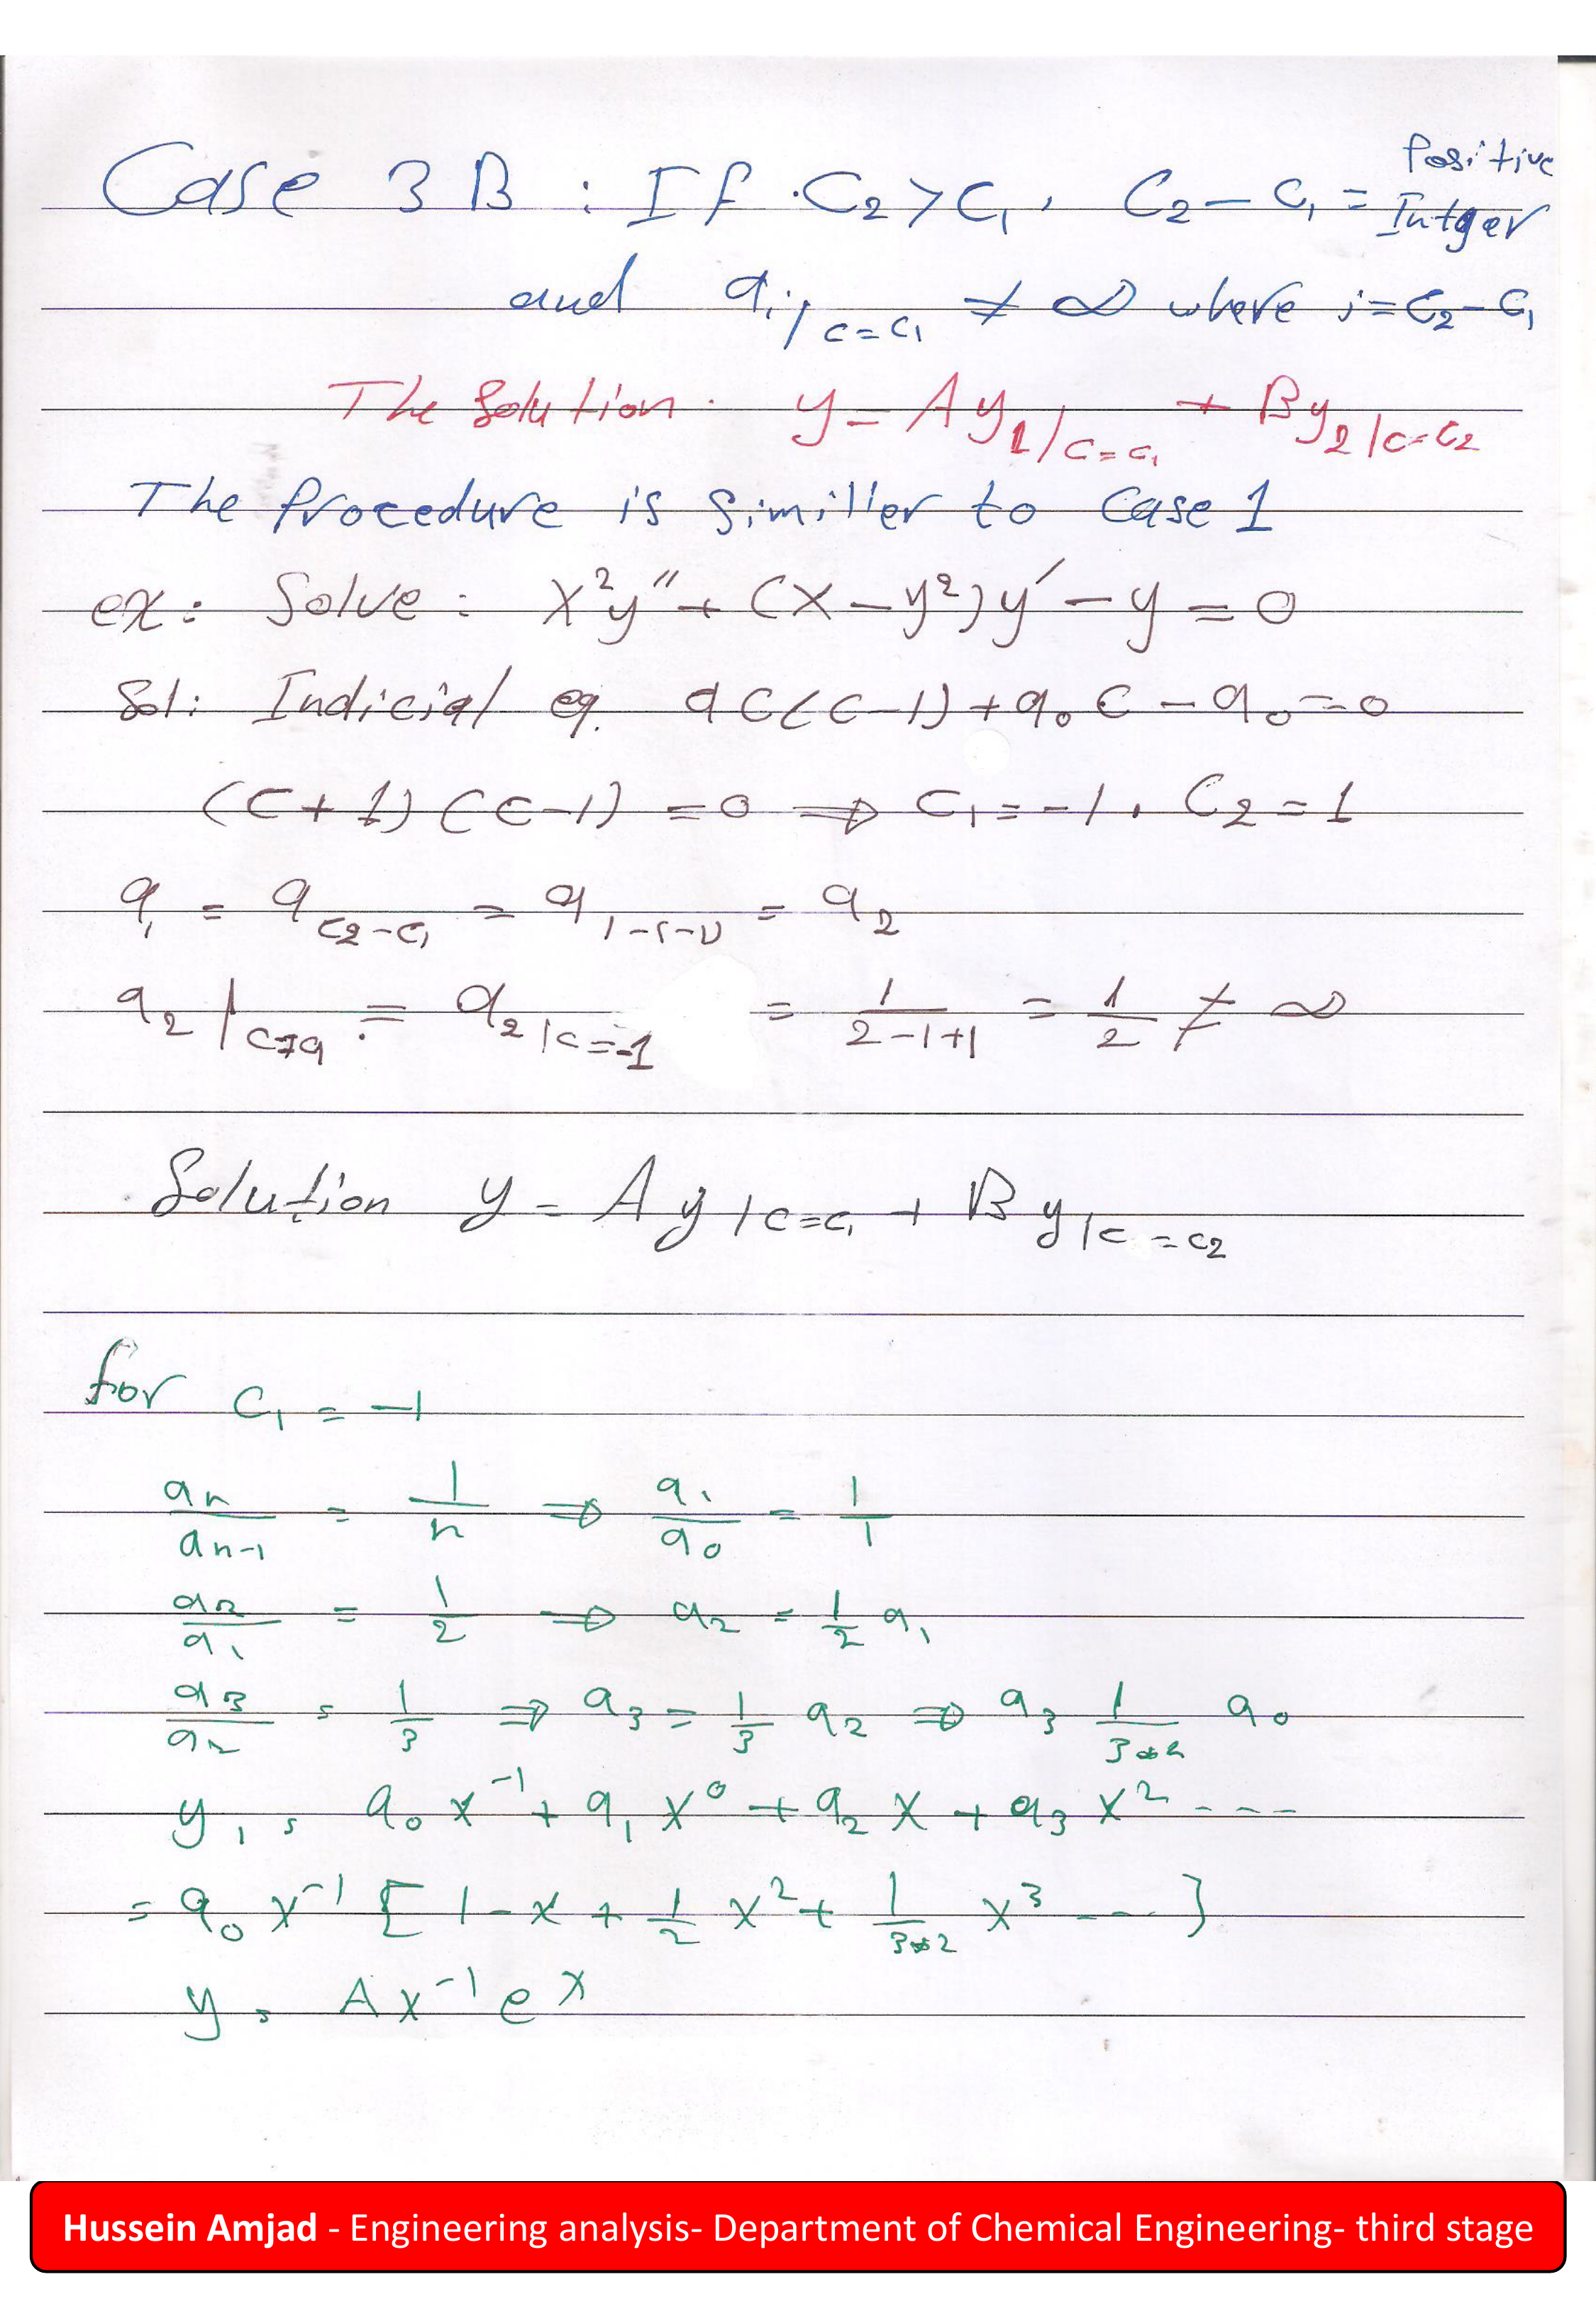 Case 3 B : If C₂ > C₁, C₂ - C₁ = Positive Intger
and aᵢ|c=c₁ ≠ ∞ where i = C₂ - C₁
The Solution. y = A y₁|c=c₁ + B y₂|c=c₂
The Procedure is similler to Case 1
ex: Solve: x²y″ + (x - y²)y′ - y = 0
Sol: Indicial eq. a C(C-1) + a₀ C - a₀ = 0
(C+1)(C-1) = 0 ⇒ C₁ = -1, C₂ = 1
aᵢ = a_{C₂-C₁} = a_{1-(-1)} = a₂
a₂|c=c₁ = a₂|c=-1 = 1/(2-1+1) = 1/2 ≠ ∞
Solution y = A y|c=c₁ + B y|c=c₂
for C₁ = -1
aₙ/aₙ₋₁ = 1/n ⇒ a₁/a₀ = 1/1
a₂/a₁ = 1/2 ⇒ a₂ = 1/2 a₁
a₃/a₂ = 1/3 ⇒ a₃ = 1/3 a₂ ⇒ a₃ 1/(3*2) a₀
y₁ = a₀ x⁻¹ + a₁ x⁰ + a₂ x + a₃ x² ----
= a₀ x⁻¹ [ 1 - x + 1/2 x² + 1/(3*2) x³ --- ]
y = A x⁻¹ eˣ
Hussein Amjad - Engineering analysis- Department of Chemical Engineering- third stage